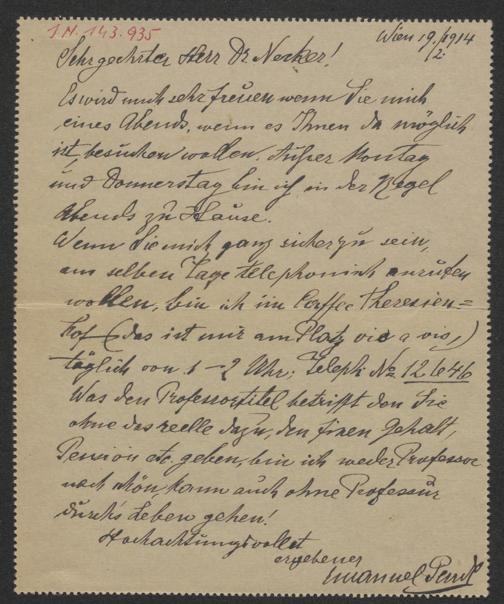 I.N. 143.935
Wien 19./2. 1914
Sehr geehrter Herr Dr Necker!
Es wird mich sehr freuen wenn Sie mich
eines Abends, wenn es Ihnen da möglich
ist, besuchen wollen. Außer Montag
und Donnerstag bin ich in der Regel
Abends zu Hause.
Wenn Sie mich ganz sicher zu sein,
am selben Tage telephonisch anrufen
wollen, bin ich im Caffee Theresien=
hof (das ist mir am Platz vis a vis,)
täglich von 1–2 Uhr; Teleph No 12646
Was den Professortitel betrifft den Sie
ohne das reelle dazu, den fixen Gehalt,
Pension etc. geben, bin ich weder Professor
noch schön, kann auch ohne Professur
durch's Leben gehen!
Hochachtungsvollst
ergebener
Emanuel Pendl